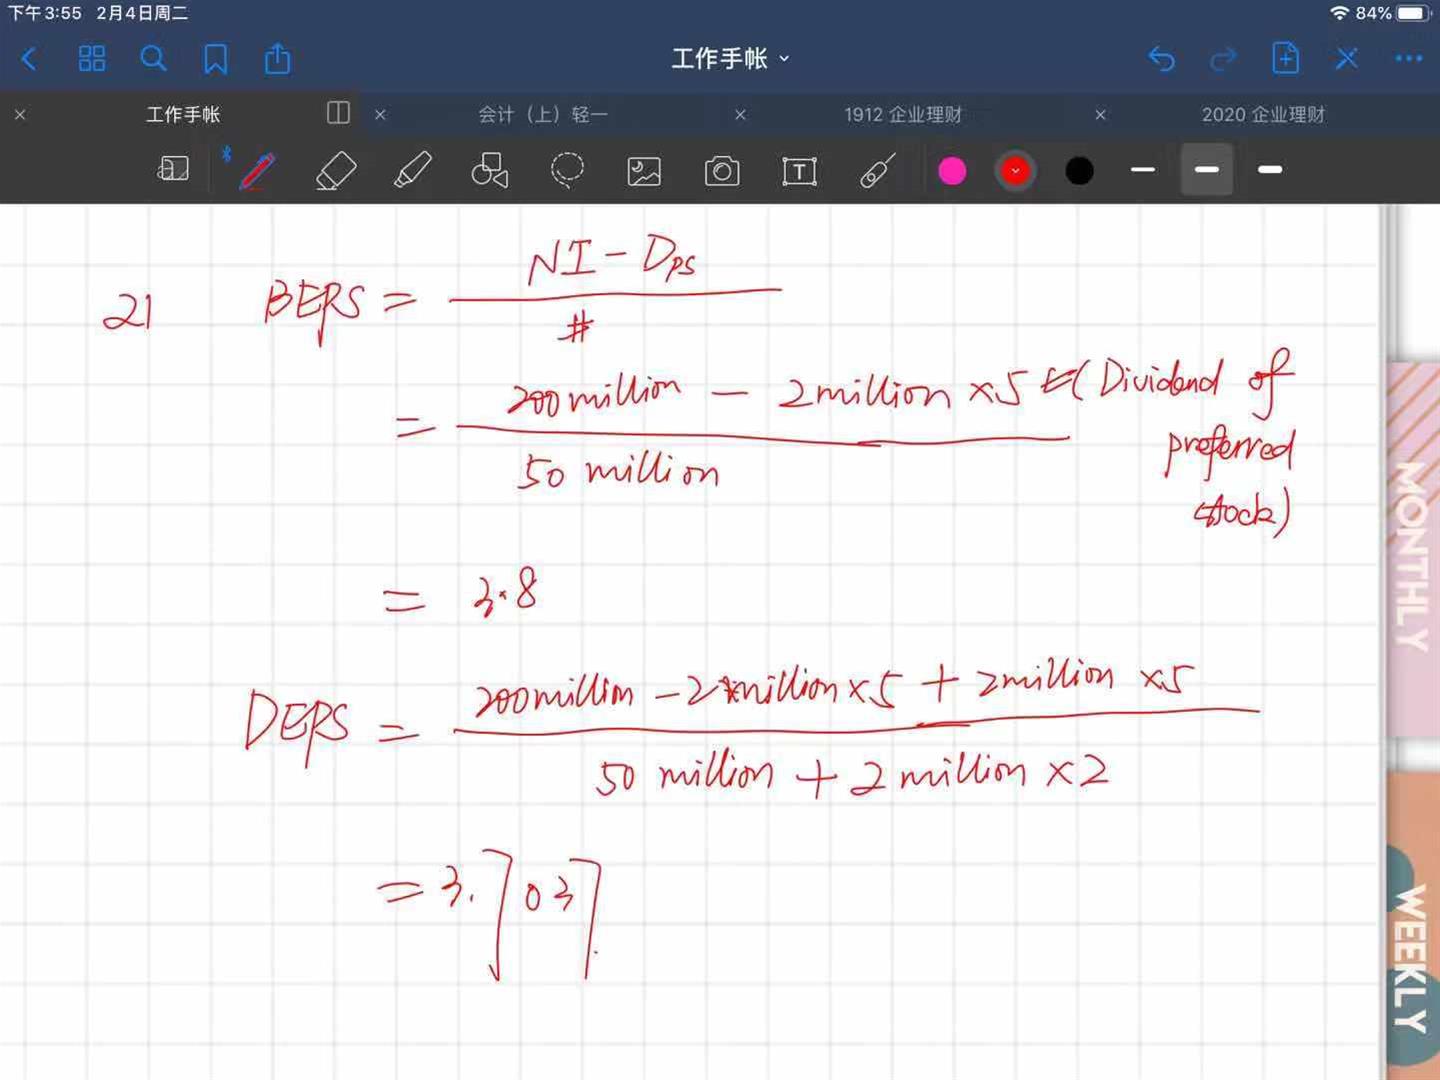 下午3:55 2月4日周二 84%
工作手帐
工作手帐 会计（上）轻一 1912 企业理财 2020 企业理财
T
21 BEPS = NI - DPS
#
= 200 million - 2 million ×5 ←(Dividend of
50 million
preferred
stock)
= 3.8
DEPS = 200 million - 2 million ×5 + 2 million ×5
50 million + 2 million ×2
= 3.7037
MONTHLY
WEEKLY